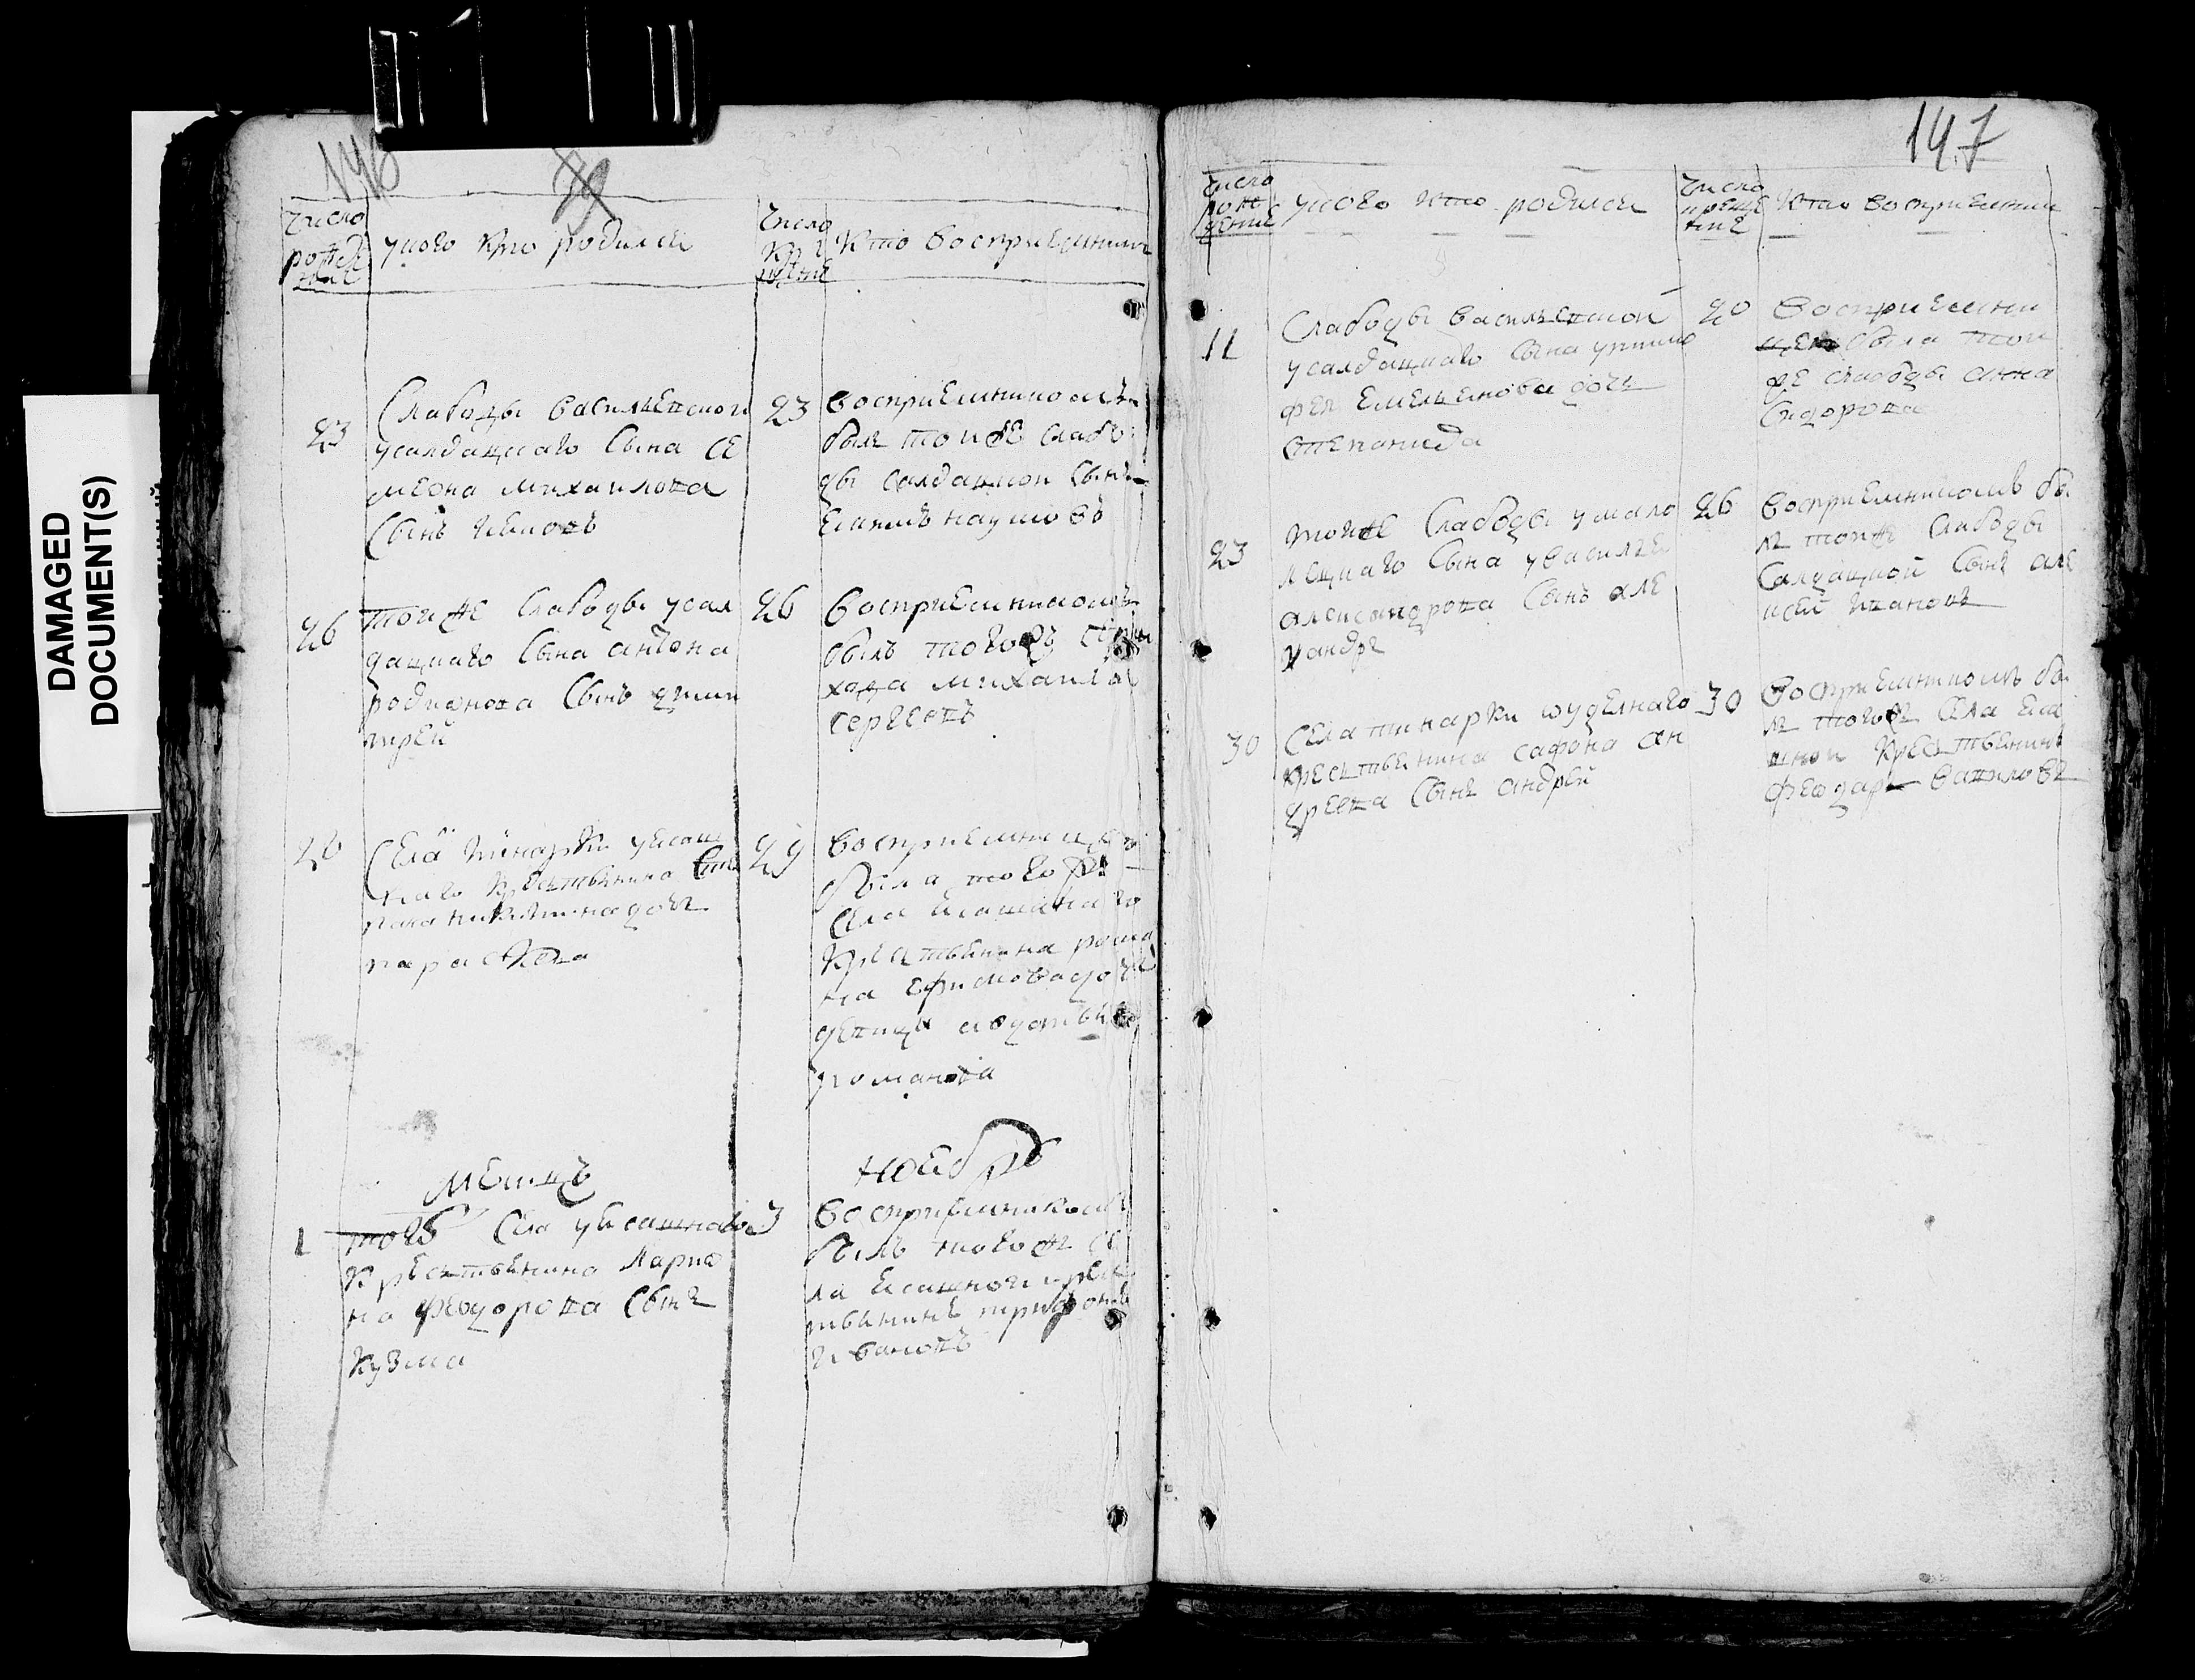 DAMAGED
DOCUMENT(S)
146
79
число
рожде
ние
у кого кто родился
число
кре
щени
кто восприемники
23
Слабоды василевской
у салдацкаго сына се
меона михаилова
сынъ
23
восприемникомъ
былъ тои же слабо
ды салдацкои сынъ
наумовъ
26
тои же слабоды у сал
дацкаго сына антона
родионова сынъ дими
трей
26
восприемникомъ
былъ тогожъ
хода михаила
сергеевъ
26
Села у ясаш
наго крестьянина
никитина дочь
парасковя
29
восприемницею
была того же
села ясашнаго
крестьянина рома
на ефимова дочь
девица
романова
месяцъ
ноябръ
1
того села у ясашнаго
крестьянина Ларио
на феодорова сынъ
кузма
3
восприемникомъ
былъ того же се
ла ясашнои крес
тьянинъ трифонъ
ивановъ
147
число
рож
дение
у кого кто родился
число
креще
ние
кто восприемники
11
Слабоды василевской
у салдацкаго сына
фея емельянова дочь
степанида
20
восприемни
цею была той
же слабоды анна
сидорова
23
тоиже слабоды у мало
лецкаго сына у василья
александрова сынъ але
ксандръ
26
восприемникомъ бы
лъ тоиже слабоды
салдацкой сынъ але
ксей ивановъ
30
Села у уделнаго
крестьянина сафона ан
дреева сынъ андрей
30
восприемникомъ бы
лъ тогоже села яса
шнои крестьянинъ
феодаръ вавиловъ